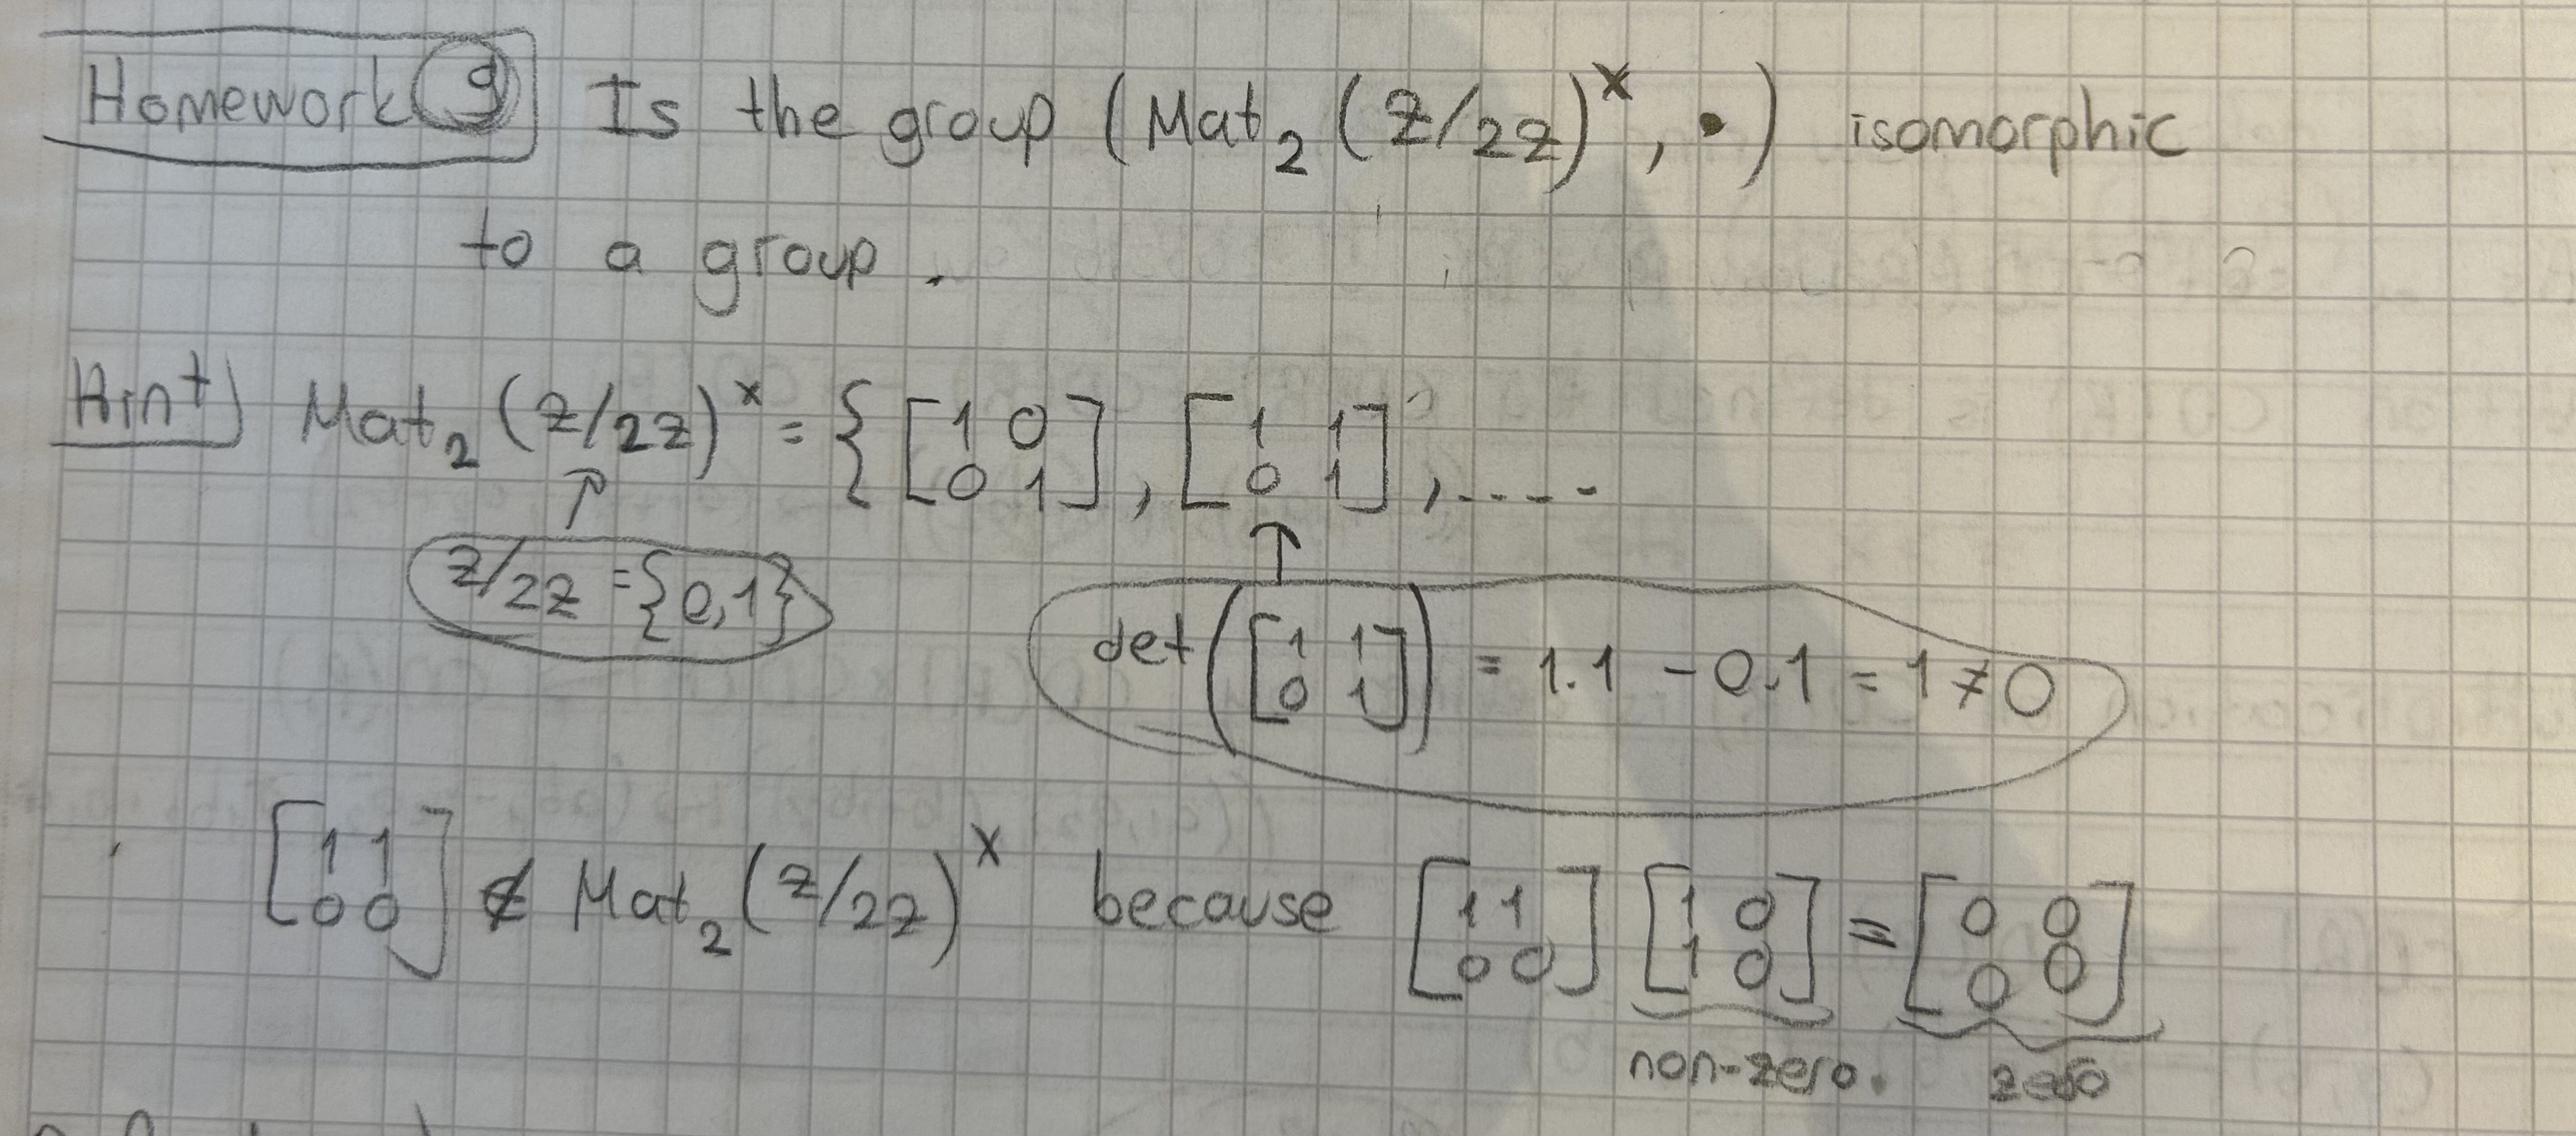 Homework 9 Is the group (Mat₂(Z/2Z)ˣ, •) isomorphic
to a group.
Hint) Mat₂(Z/2Z)ˣ = {[1 0; 0 1], [1 1; 0 1], ....
Z/2Z = {0,1}
det([1 1; 0 1]) = 1.1 - 0.1 = 1 ≠ 0
[1 1; 0 0] ∉ Mat₂(Z/2Z)ˣ because [1 1; 0 0] [1 0; 1 0] = [0 0; 0 0]
non-zero. zero